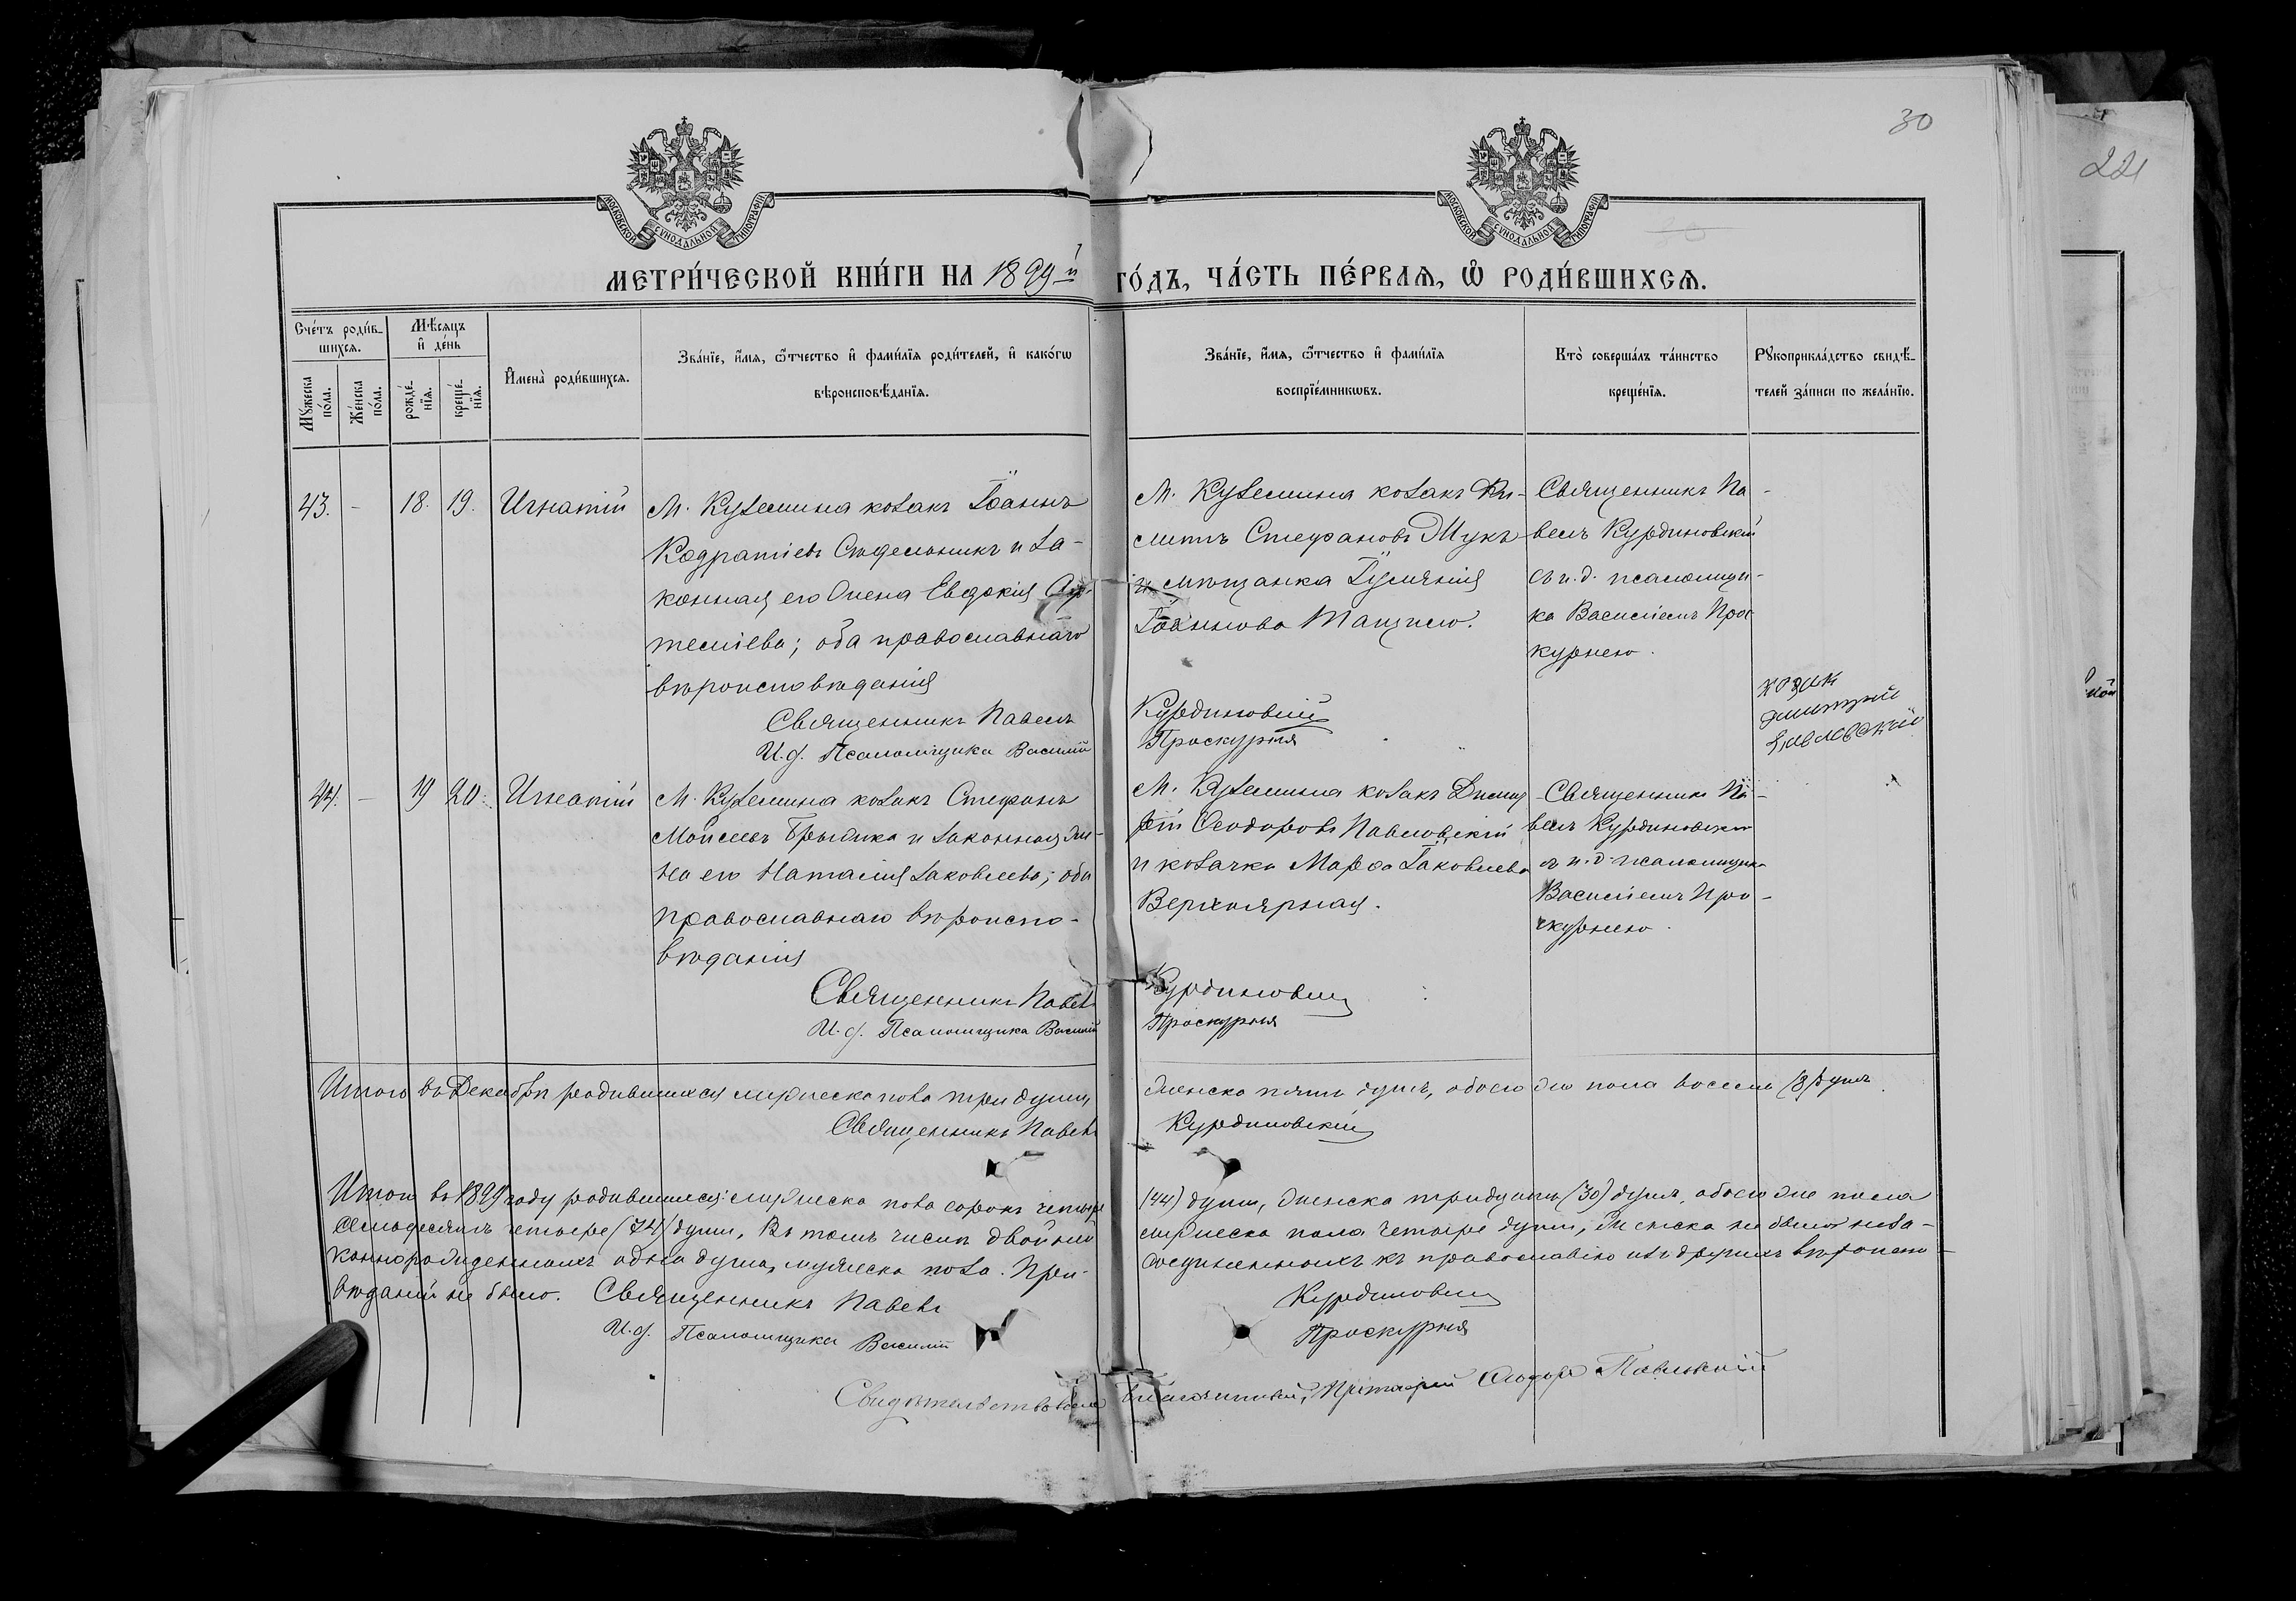 30
221
МОСКОВСКОЙ СѴНОДАЛЬНОЙ ТИПОГРАФІИ
МОСКОВСКОЙ СѴНОДАЛЬНОЙ ТИПОГРАФІИ
МЕТРИ́ЧЕСКОЙ КНИ́ГИ НА 1899й ГО́ДЪ, ЧА́СТЬ ПЕ́РВАЯ, Ѡ҆ РОДИ́ВШИХСЯ.
Сче́тъ роди́в-
шихся.
Му́жеска по́ла.
Же́нска по́ла.
Мѣ́сяцъ и҆ де́нь
рожде́-
нїя.
креще́-
нїя.
И҆мена̀ роди́вшихся.
Зва́нїе, и҆́мя, ѻ҆́тчество и҆ фами́лїя роди́телей, и҆ како́гѡ
вѣроисповѣ́данїя.
Зва́нїе, и҆́мя, ѻ҆́тчество и҆ фами́лїя
воспрїе́мникѡвъ.
Кто̀ соверша́лъ та́инство
креще́нїя.
Рꙋкоприкла́дство свидѣ́-
телей за́писи по жела́нїю.
43. - 18. 19. Игнатій
М. Куземина козакъ Іоаннъ
Кодратіевъ Сѣдельникъ и за-
конная его жена Евдокія Ар-
теміева; оба православнаго
вѣроисповѣданія
Священникъ Павелъ
И.д. Псаломщика Василій
М. Куземина козакъ
Стефановъ Жукъ
и мѣщанка Іуліанія
Іоаннова
Курдиновскій
Проскурня
Священникъ Па-
велъ Курдиновскій
съ и.д. псаломщи-
ка Василіемъ Прос
курнею.
козак
дмитрий
павловский
44. - 19 20. Игнатій
М. Куземина козакъ Стефанъ
Моисеевъ Брыжка и законная же-
на его Наталія Іаковлева; оба
православнаго вѣроиспо-
вѣданія
Священникъ Павелъ
И.д. Псаломщика Василій
М. Куземина козакъ Димит
рій Ѳеодоровъ Павловскій
и козачка Марѳа Іаковлева
Верхоярная.
Курдиновскій
Проскурня
Священникъ Па-
велъ Курдиновскій
съ и.д. псаломщика
Василіемъ Про-
скурнею.
Итого въ Декабрѣ родившихся мужеска пола три души, женска пять душъ, обоего же пола восемь (8) душъ.
Священникъ Павелъ Курдиновскій
Итого въ 1899 году родившихся: мужеска пола сорокъ четыре (44) души, женска тридцать (30) душъ, обоего же пола
семьдесятъ четыре (74) души, Въ томъ числѣ двойней мужеска пола четыре души, женска не было неза-
коннорожденныхъ одна душа, мужеска пола. При- соединенныхъ къ православію изъ другихъ вѣроиспо-
вѣданій не было. Священникъ Павелъ Курдиновскій
И.д. Псаломщика Василій Проскурня
Свидѣтельствовалъ благочинный, Протоіерей Ѳеодоръ Павловскій